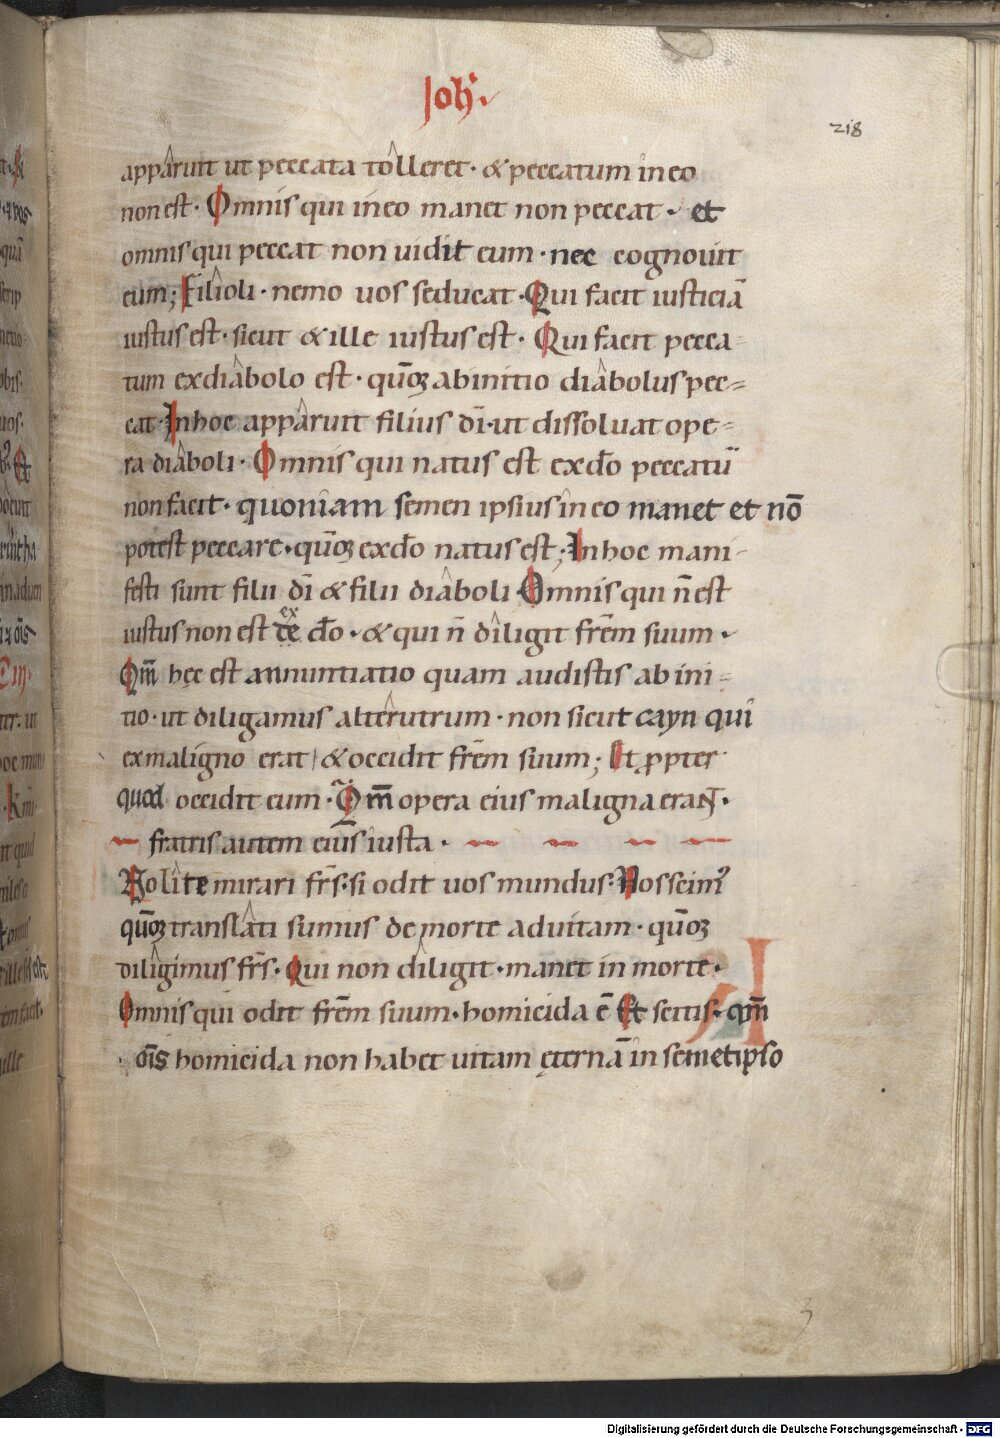 Joh'.
218
apparuit ut peccata tolleret · & peccatum in eo
non est · Omnis qui in eo manet non peccat · et
omnis qui peccat non uidit eum · nec cognouit
eum; Filioli · nemo uos seducat · Qui facit iusticiā
iustus est · sicut & ille iustus est · Qui facit pecca-
tum ex diabolo est · quō​ꝫ ab initio diabolus pec=
cat · In hoc apparuit filius dī · ut dissoluat ope=
ra diaboli · Omnis qui natus est ex dō peccatū
non facit · quoniam semen ipsius in eo manet et nō
potest peccare · quō​ꝫ ex dō natus est; In hoc mani-
festi sunt filii dī & filii diaboli · Omnis qui n̄ est
iustus non est ex de dō · & qui n̄ diligit frēm suum ·
Qm̄ hęc est annuntiatio quam audistis ab ini=
tio · ut diligamus alterutrum · non sicut cayn qui
ex maligno erat / & occidit frēm suum; Et ꝓpter
quod occidit eum · Qm̄ opera eius maligna erant ·
fratris autem eius iusta ·
Nolite mirari fr̄s · si odit uos mundus · Nos scim'
quō​ꝫ translati sumus de morte ad uitam · quō​ꝫ
diligimus fr̄s · Qui non diligit · manet in morte ·
Omnis qui odit frēm suum · homicida ē Et scitis · qm̄
· om̄s homicida non habet uitam ęternā in semetipso
Digitalisierung gefördert durch die Deutsche Forschungsgemeinschaft · DFG